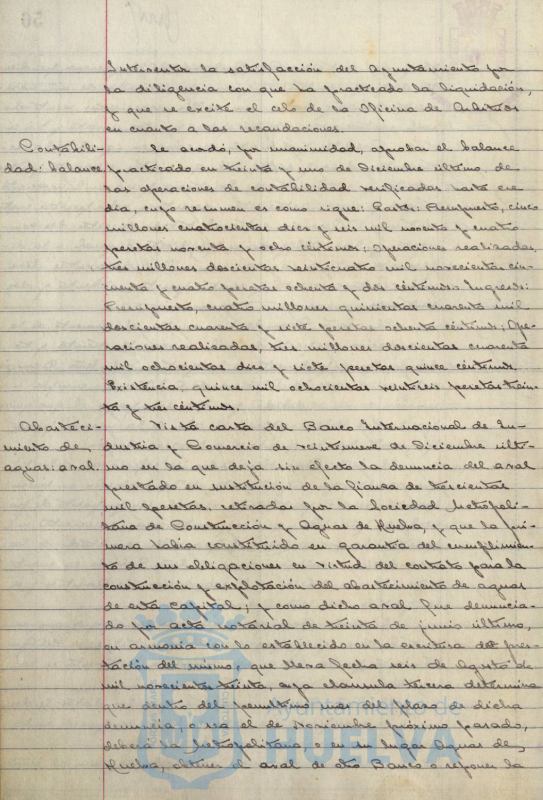 Interventor la satisfacción del Ayuntamiento por
la diligencia con que ha practicado la liquidación,
y que se excite el celo de la Oficina de Arbitrios
en cuanto a las recaudaciones.
Contabili-
dad: balance
Se acordó, por unanimidad, aprobar el balance
practicado en treinta y uno de Diciembre último, de
las operaciones de contabilidad verificadas hasta ese
día, cuyo resumen es como sigue: Gastos: Presupuesto, cinco
millones cuatrocientas diez y seis mil noventa y cuatro
pesetas noventa y ocho céntimos; Operaciones realizadas,
tres millones doscientas veinticuatro mil novecientas cin-
cuenta y cuatro pesetas ochenta y dos céntimos. Ingresos:
Presupuesto, cuatro millones quinientas cuarenta mil
doscientas cuarenta y siete pesetas ochenta céntimos; Ope-
raciones realizadas, tres millones doscientas cuarenta
mil ochocientas diez y siete pesetas quince céntimos.
Existencia, quince mil ochocientas veintiseis pesetas trein-
ta y tres céntimos.
Abasteci-
miento de
aguas: aval.
Vista carta del Banco Internacional de In-
dustria y Comercio de veintinueve de Diciembre últi-
mo en la que deja sin efecto la denuncia del aval
prestado en sustitución de la fianza de trescientas
mil pesetas, retiradas por la Sociedad Metropoli-
tana de Construcción y Aguas de Huelva, y que la pri-
mera había constituido en garantía del cumplimien-
to de sus obligaciones en virtud del contrato para la
construcción y explotación del abastecimiento de aguas
de esta capital; y como dicho aval fue denuncia-
do por acta notarial de treinta de junio último,
en armonía con lo establecido en la escritura de pres-
tación del mismo, que lleva fecha seis de Agosto de
mil novecientos treinta, cuya clausula tercera determina
que dentro del penultimo mes del plazo de dicha
denuncia, o sea el de Noviembre próximo pasado,
deberá la Metropolitana, o en su lugar Aguas de
Huelva, obtener el aval de otro Banco o reponer la
Ayuntamiento de
HUELVA